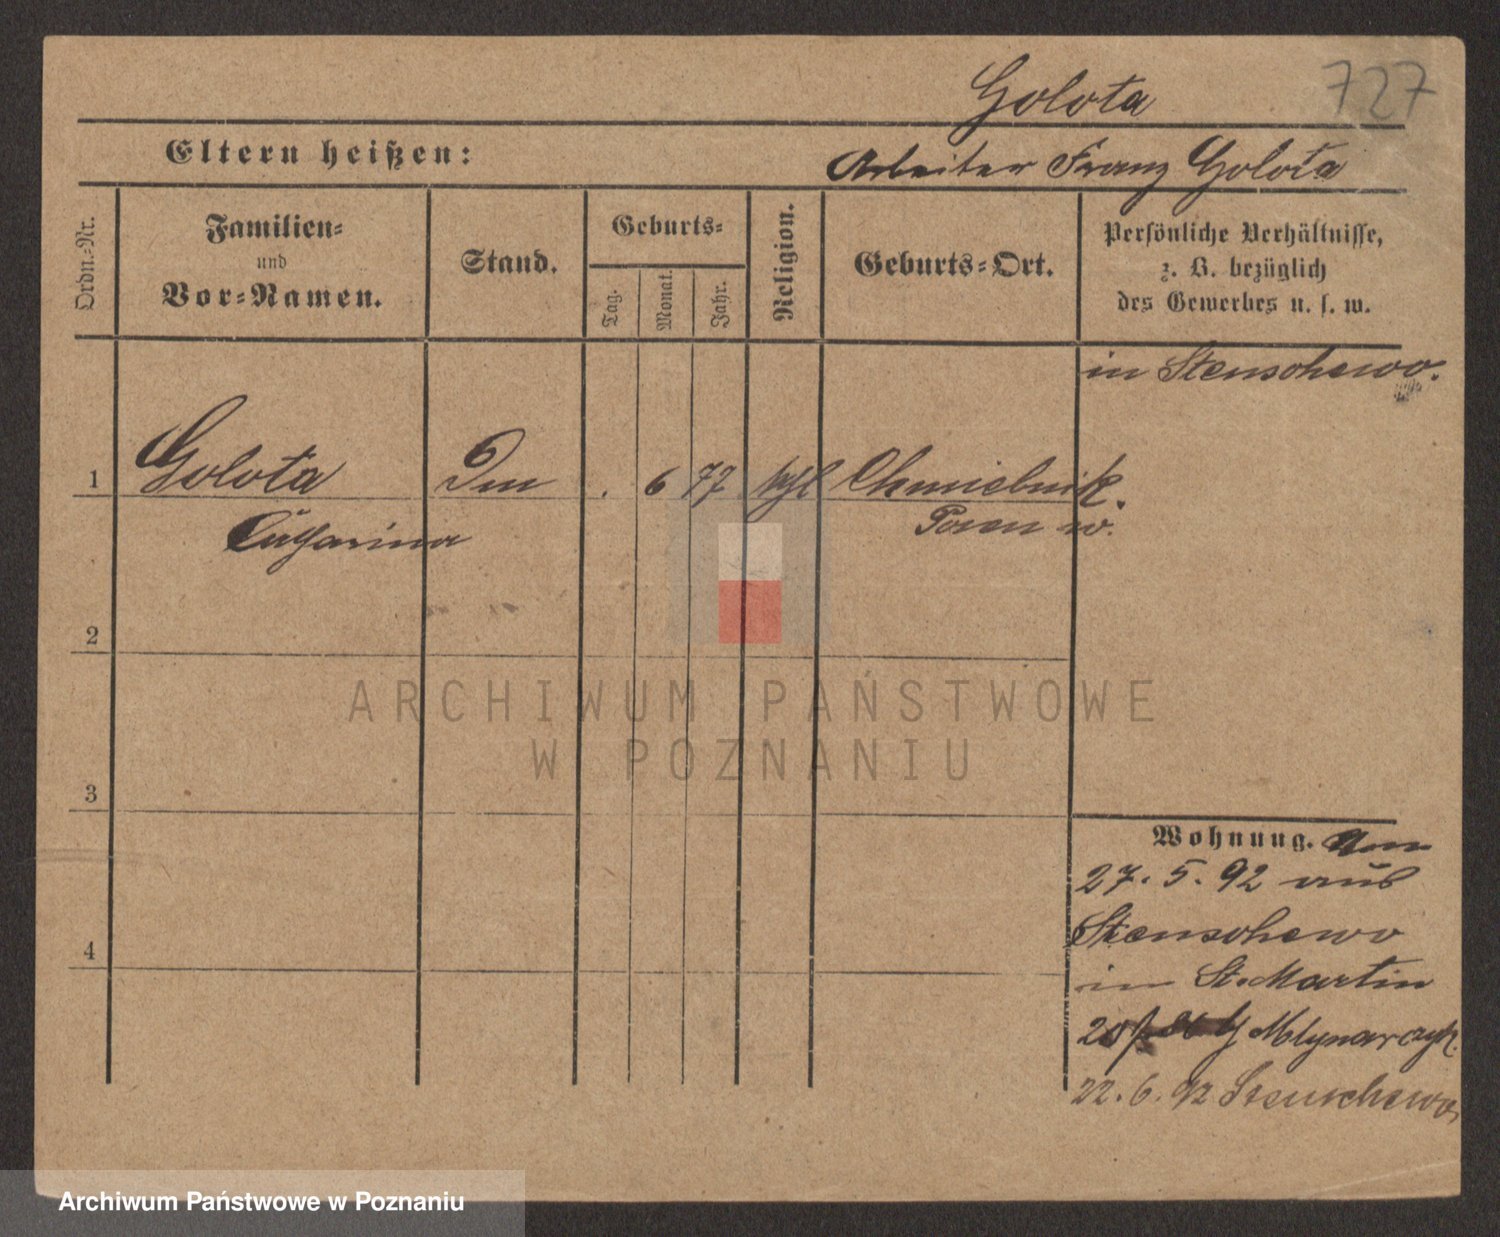 727
Golota
Eltern heißen: Arbeiter Franz Golota
Ordn.-Nr.
Familien-
und
Vor-Namen.
Stand.
Geburts-
Tag.
Monat.
Jahr.
Religion.
Geburts-Ort.
Persönliche Verhältnisse,
z. B. bezüglich
des Gewerbes u. s. w.
in Stenschewo.
1 Golota . 6 77 kath Chmielnik.
Catharina Posen w.
2
3
4
Wohnung. Am
27. 5. 92 aus
Stenschewo
in St. Martin
Mlynarczyk.
22. 6. 92 Stenschewo
ARCHIWUM PAŃSTWOWE
W POZNANIU
Archiwum Państwowe w Poznaniu